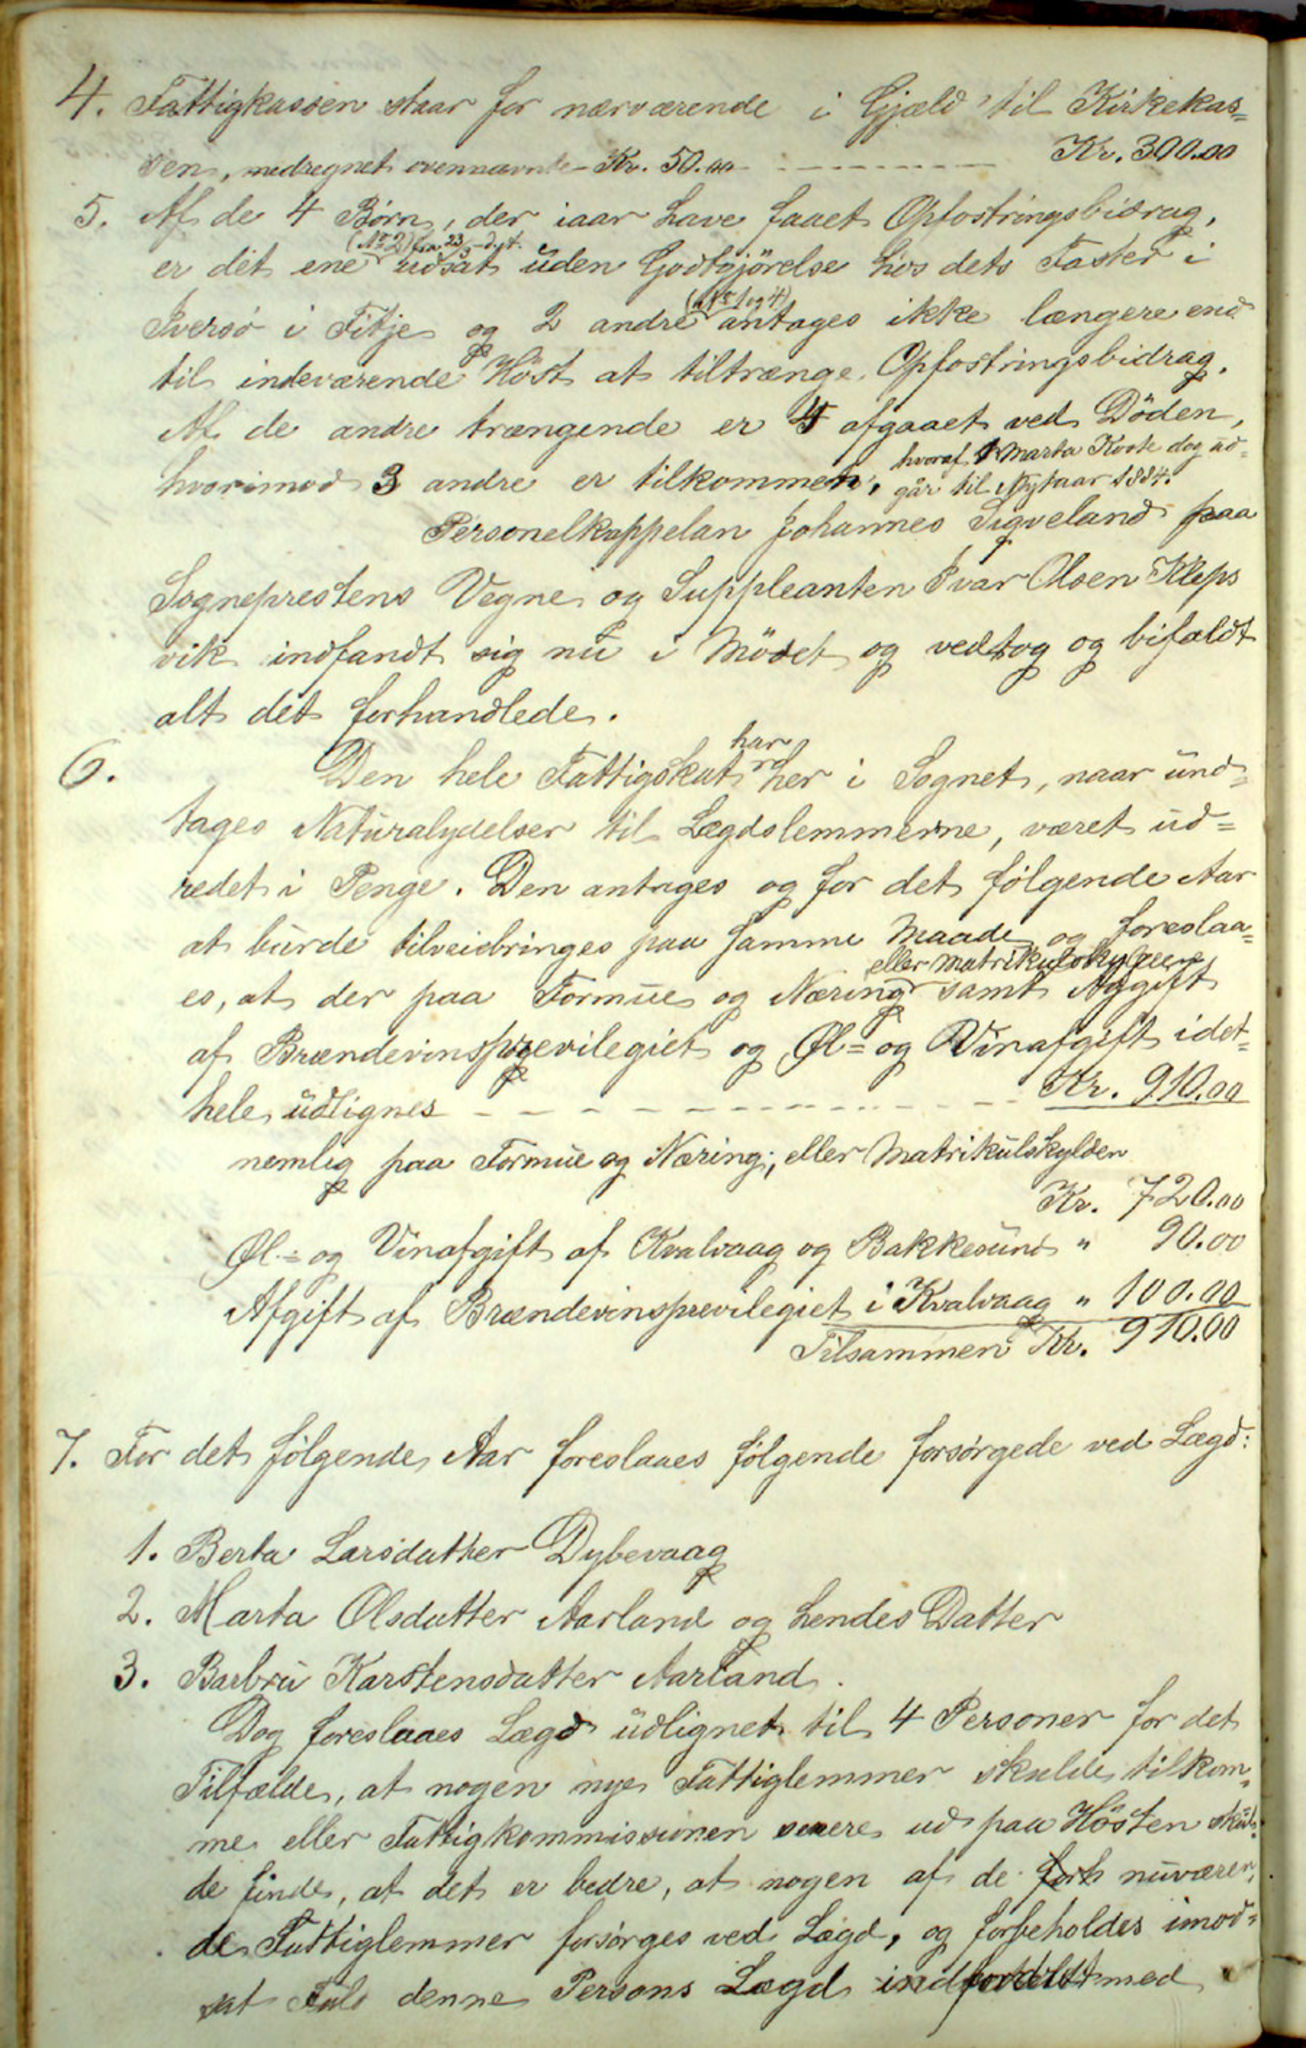 4. Fattigkassen staar for nærværende i Gjæld til Kirkekas=
sen, medregnet ovennævnte Kr. 50.00 - - - - - - Kr. 300.00
5. Af de 4 Børn, der iaar have faaet Opfostringsbidrag,
(No 2) fra 23/5 d. A.
er det ene udsat uden Godtgjörelse hos dets Faster i
(No 1 og 4)
Iversö i Fitje og 2 andre antages ikke længere end
til indeværende Höst at tiltrænge Opfostringsbidrag.
Af de andre trængende er 4 afgaaet ved Döden,
hvorimod 3 andre er tilkommen, hvoraf 1 Marta Koste dog ud=
går til Nytaar 1884.
Personelkappelan Johannes Sigveland paa
Sogneprestens Vegne og Suppleanten Ivar Olsen Kleps
vik indfandt sig nu i Mödet og vedtog og bifaldt
alt det forhandlede.
har
6. Den hele Fattigskat her i Sognet, naar und=
tages Naturalydelser til Lægdslemmerne, været ud=
redet i Penge. Den antages og for det fölgende Aar
at burde tilveiebringes paa samme Maade og foreslaa=
eller Matrikulskylden
es, at der paa Formue og Næring samt Afgift
af Brændevinsprevilegiet og Øl= og Vinafgift idet=
hele udlignes - - - - - - - - - - Kr. 910.00
nemlig paa Formue og Næring, eller Matrikulskylden
Kr. 720.00
Øl= og Vinafgift af Kvalvaag og Bakkesund " 90.00
Afgift af Brændevinsprevilegiet i Kvalvaag " 100.00
Tilsammen Kr. 910.00
7. For det fölgende Aar foreslaaes fölgende forsörgede ved Lægd:
1. Berta Larsdatter Dybevaag
2. Marta Olsdatter Aarland og hendes Datter
3. Barbru Karstensdatter Aarland.
Dog foreslaaes Lægd udlignet til 4 Personer for det
Tilfælde, at nogen nye Fattiglemmer skulde tilkom=
me eller Fattigkommissionen senere ud paa Hösten skul=
de finde, at det er bedre, at nogen af de nuværen=
de Fattiglemmer forsörges ved Lægd, og forbeholdes imod=
sat Fald denne Persons Lægd med